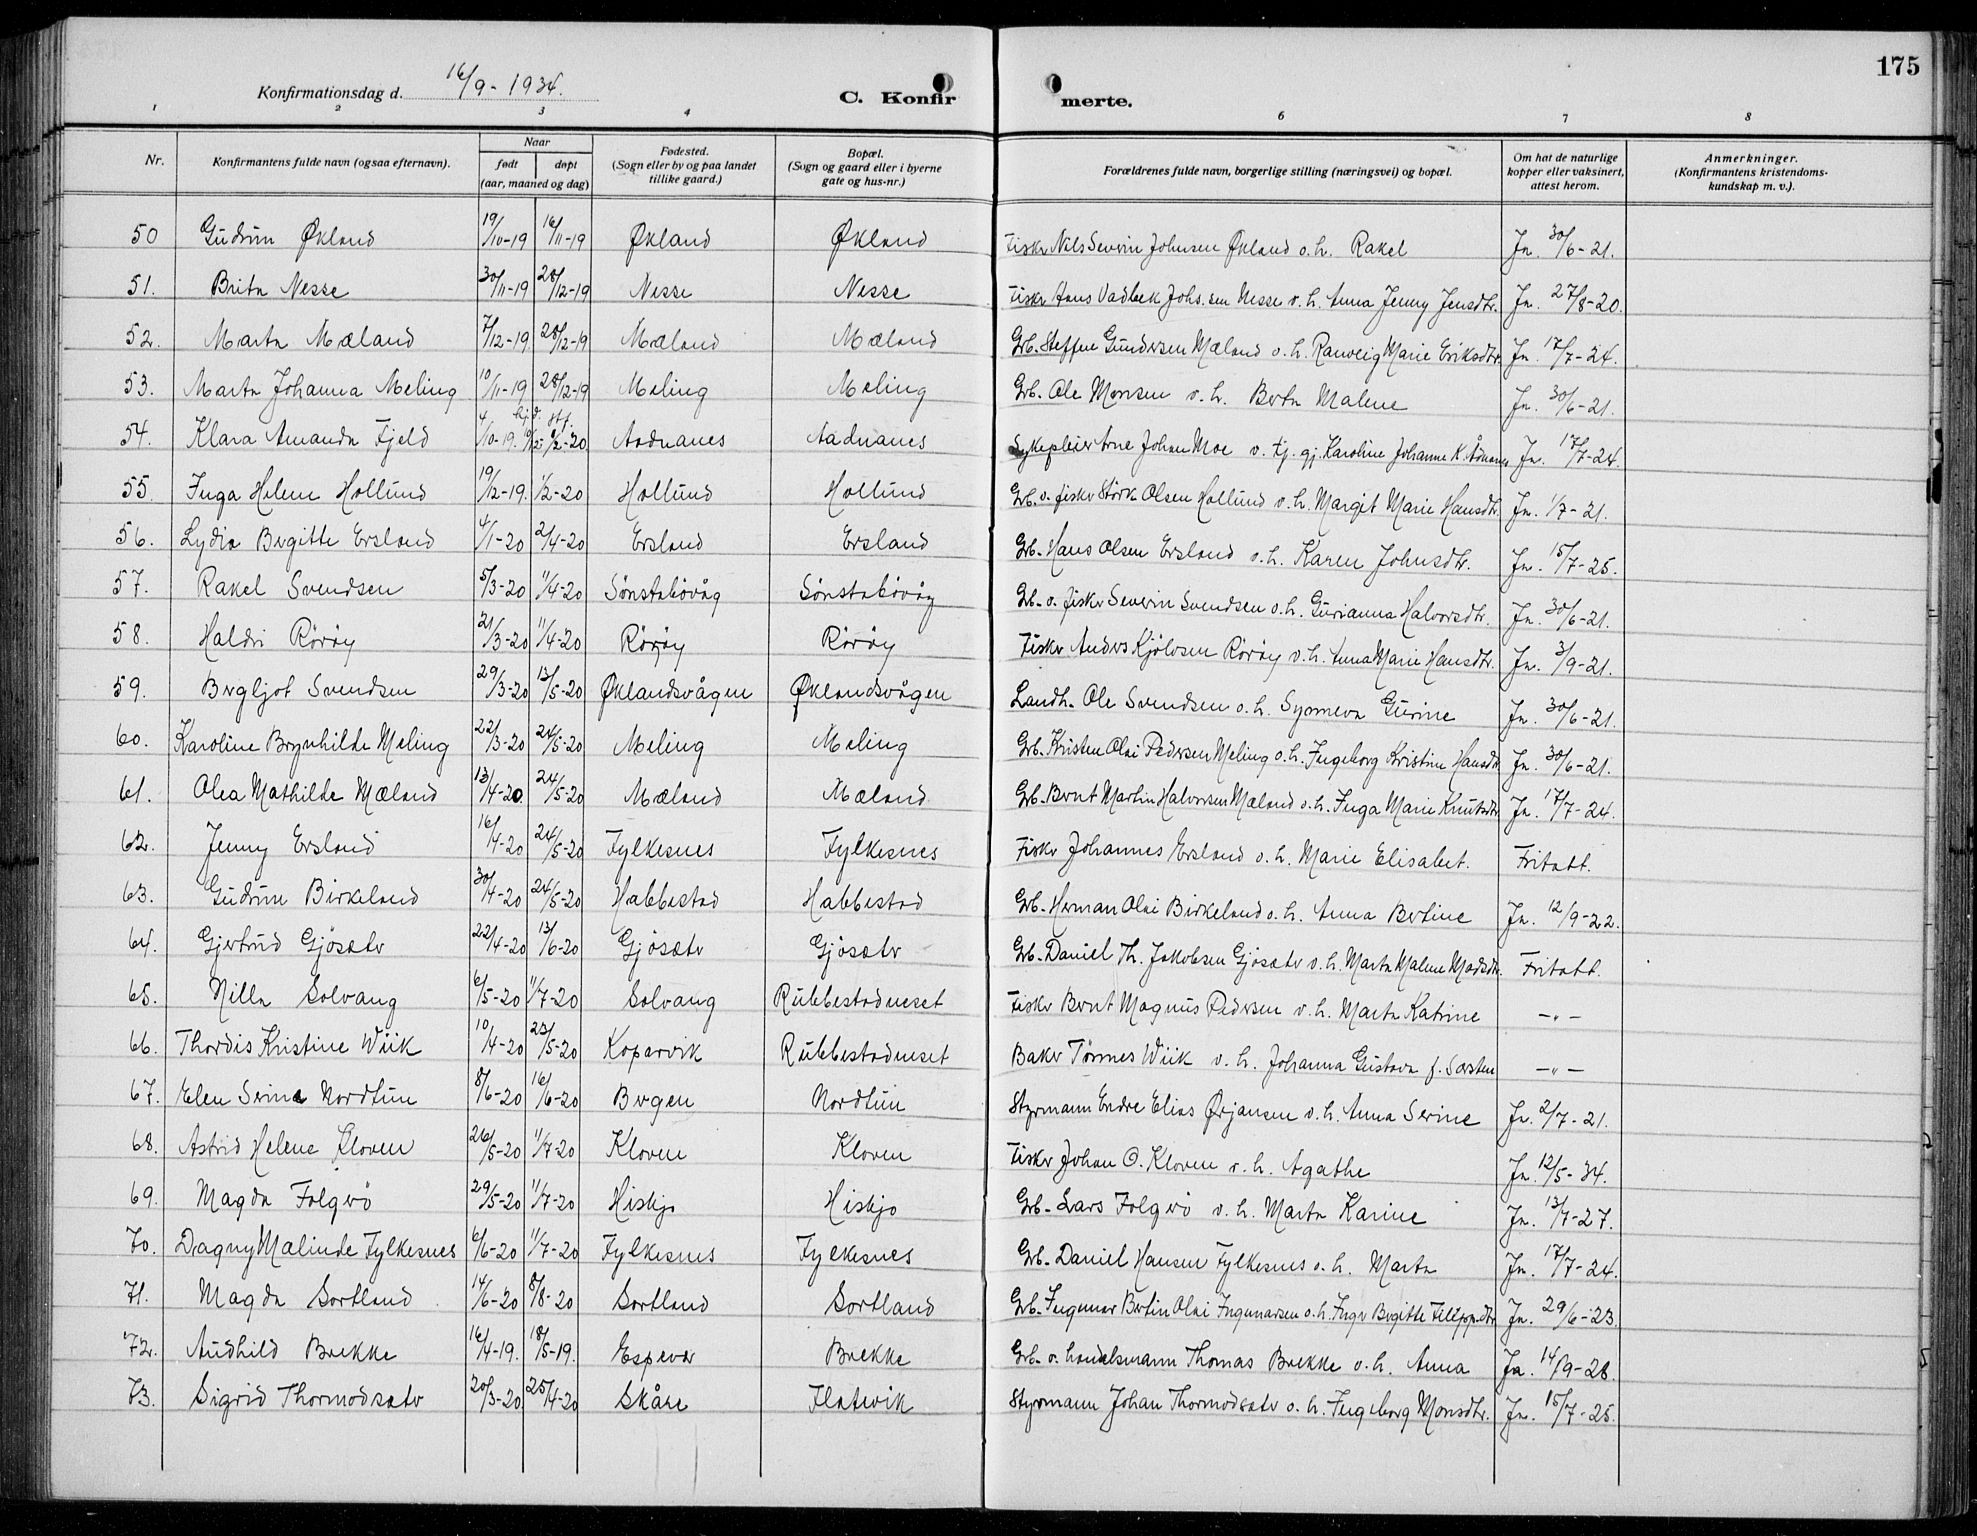 175
Konfirmationsdag d. 16/9-1934.
C. Konfirmerte.
1 2 3 4 6 7 8
Nr. Konfirmantens fulde navn (ogsaa efternavn). Naar født døpt (aar, maaned og dag) Fødested. (Sogn eller by og paa landet tillike gaard.) Bopæl. (Sogn og gaard eller i byerne gate og hus-nr.) Forældrenes fulde navn, borgerlige stilling (næringsvei) og bopæl. Om hat de naturlige kopper eller vaksinert, attest herom. Anmerkninger. (Konfirmantens kristendomskundskap m. v.).
50 Gudrun Økland 19/10-19 16/11-19 Økland Økland Fisker Nils Severin Johnsen Økland o.h. Rakel Ja. 30/6-21.
51. Brita Nesse 30/11-19 28/12-19 Nesse Nesse Fisker Hans Vadbek Johs.sen Nesse o.h. Anna Jenny Jensdtr. Ja. 27/8-20.
52. Marta Mæland 7/12-19 28/12-19 Mæland Mæland Grb. Steffen Gundersen Mæland o.h. Ranveig Marie Eriksdtr. Ja. 17/7-24.
53. Marta Johanna Meling 10/11-19 28/12-19 Meling Meling Grb. Ole Monsen o.h. Berta Malene Ja. 30/6-21.
54. Klara Amanda Fjeld 4/10-19. hj.d. stf. 8/2-20 Aadnanes Aadnanes Sykepleier Arne Johan Moe o. tj. gj. Karoline Johanne K. Ådnanes Ja. 17/7-24.
55. Inga Helene Hollund 19/12-19. 1/2-20 Hollund Hollund Grb. o. fisker Størk Olsen Hollund o.h. Margit Marie Hansdtr. Ja. 1/7-21.
56. Lydia Bergitte Ersland 4/1-20 2/4-20 Ersland Ersland Grb. Hans Olsen Ersland o.h. Karen Johnsdtr. Ja. 15/7-25.
57. Rakel Svendsen 5/3-20 11/4-20 Sønstabøvåg Sønstabøvåg Grb. o. fisker Severin Svendsen o.h. Gurianna Halvorsdtr. Ja. 30/6-21.
58. Haldri Rørøy 21/3-20 11/4-20 Rørøy Rørøy Fisker Anders Kjølvsen Rørøy o.h. Anna Marie Hansdtr. Ja. 3/9-21.
59. Bergljot Svendsen 29/3-20 13/5-20 Øklandsvågen Øklandsvågen Landh. Ole Svendsen o.h. Synneva Gurine Ja. 30/6-21.
60. Karoline Brynhilde Meling 22/3-20 24/5-20 Meling Meling Grb. Kristen Olai Pedersen Meling o.h. Ingeborg Kristine Hansdtr. Ja. 30/6-21.
61. Olea Mathilde Mæland 13/4-20 24/5-20 Mæland Mæland Grb. Bernt Martin Halvorsen Mæland o.h. Inga Marie Knutsdtr. Ja. 17/7-24.
62. Jenny Ersland 16/4-20 24/5-20 Fylkesnes Fylkesnes Fisker Johannes Ersland o.h. Marie Elisabet. Fritatt.
63. Gudrun Birkeland 30/4-20 24/5-20 Habbestad Habbestad Grb. Herman Olai Birkeland o.h. Anna Bertine Ja. 12/9-22.
64. Gjertrud Gjøsæter 22/4-20 13/6-20 Gjøsæter Gjøsæter Grb. Daniel Th. Jakobsen Gjøsæter o.h. Marta Malene Madsdtr. Fritatt.
65. Nilla Solvang 6/5-20 11/7-20 Solvang Rubbestadneset Fisker Bernt Magnus Pedersen o.h. Marta Katrine -"-
66. Thordis Kristine Wiik 10/4-20 23/5-20 Kopervik Rubbestadneset Baker Tørmes Wiik o.h. Johanna Gustava f. Sørsten -"-
67. Elen Serine Nordtun 8/6-20 16/6-20 Bergen Nordtun Styrmann Endre Elias Ørjansen o.h. Anna Serine Ja. 2/7-21.
68. Astrid Helene Kloven 26/5-20 11/7-20 Kloven Kloven Fisker Johan O. Kloven o.h. Agathe Ja. 12/5-34.
69. Magda Folgerø 29/5-20 11/7-20 Hiskjo Hiskjo Grb. Lars Folgerø o.h. Marta Karine Ja. 13/7-27.
70. Dagny Malinde Fylkesnes 6/6-20 11/7-20 Fylkesnes Fylkesnes Grb. Daniel Hansen Fylkesnes o.h. Marta Ja. 17/7-24.
71. Magda Sortland 14/6-20 8/8-20 Sortland Sortland Grb. Ingemar Bertin Olai Ingemarsen o.h. Inger Bergitte Filippsdtr. Ja. 29/6-23.
72. Audhild Brekke 16/4-19. 18/5-19. Espevær Brekke Grb. o. handelsmann Thomas Brekke o.h. Anna Ja. 14/9-28.
73. Sigrid Thormodsæter 20/3-20 25/4-20 Skåre Flatevik Styrmann Johan Thormodsæter o.h. Ingeborg Monsdtr. Ja. 15/7-25.